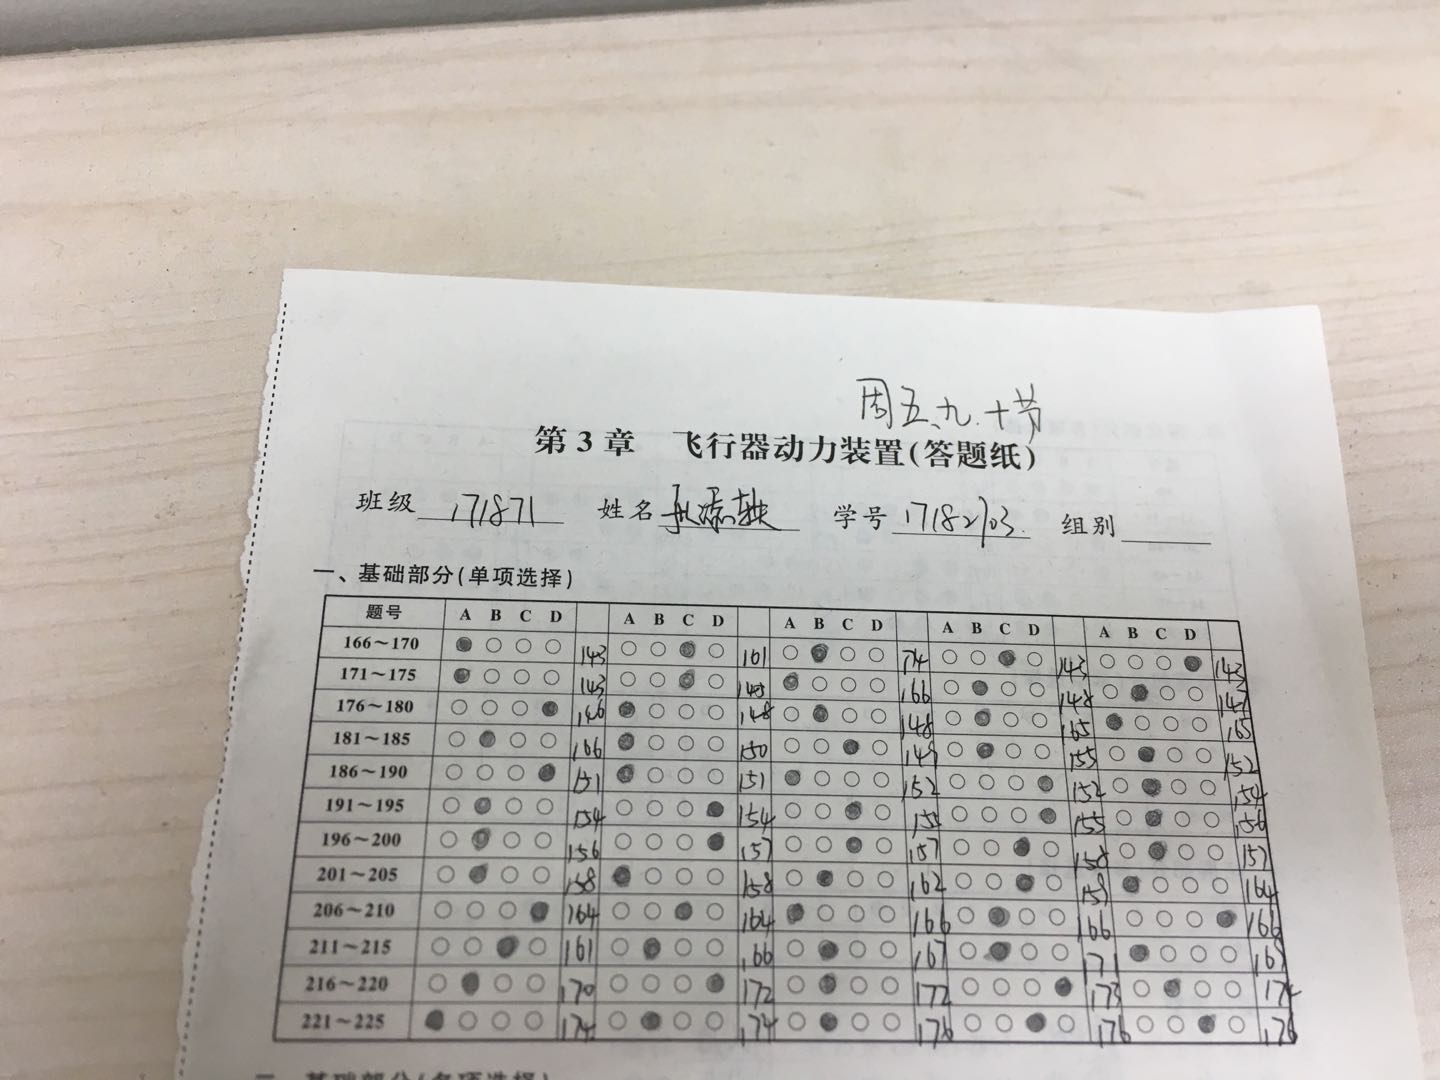 周五、九、十节
第3章 飞行器动力装置(答题纸)
班级 171871 姓名 学号 17182703 组别
一、基础部分(单项选择)
题号 A B C D A B C D A B C D A B C D A B C D
166~170 143 161 174 143 143
171~175 143 145 166 148 147
176~180 146 148 148 165 165
181~185 166 150 149 155 152
186~190 151 151 152 152 154
191~195 154 154 155 155 156
196~200 156 157 157 158 157
201~205 158 158 162 159 164
206~210 164 164 166 166 166
211~215 161 166 167 171 169
216~220 170 172 172 173 174
221~225 174 174 176 176 176